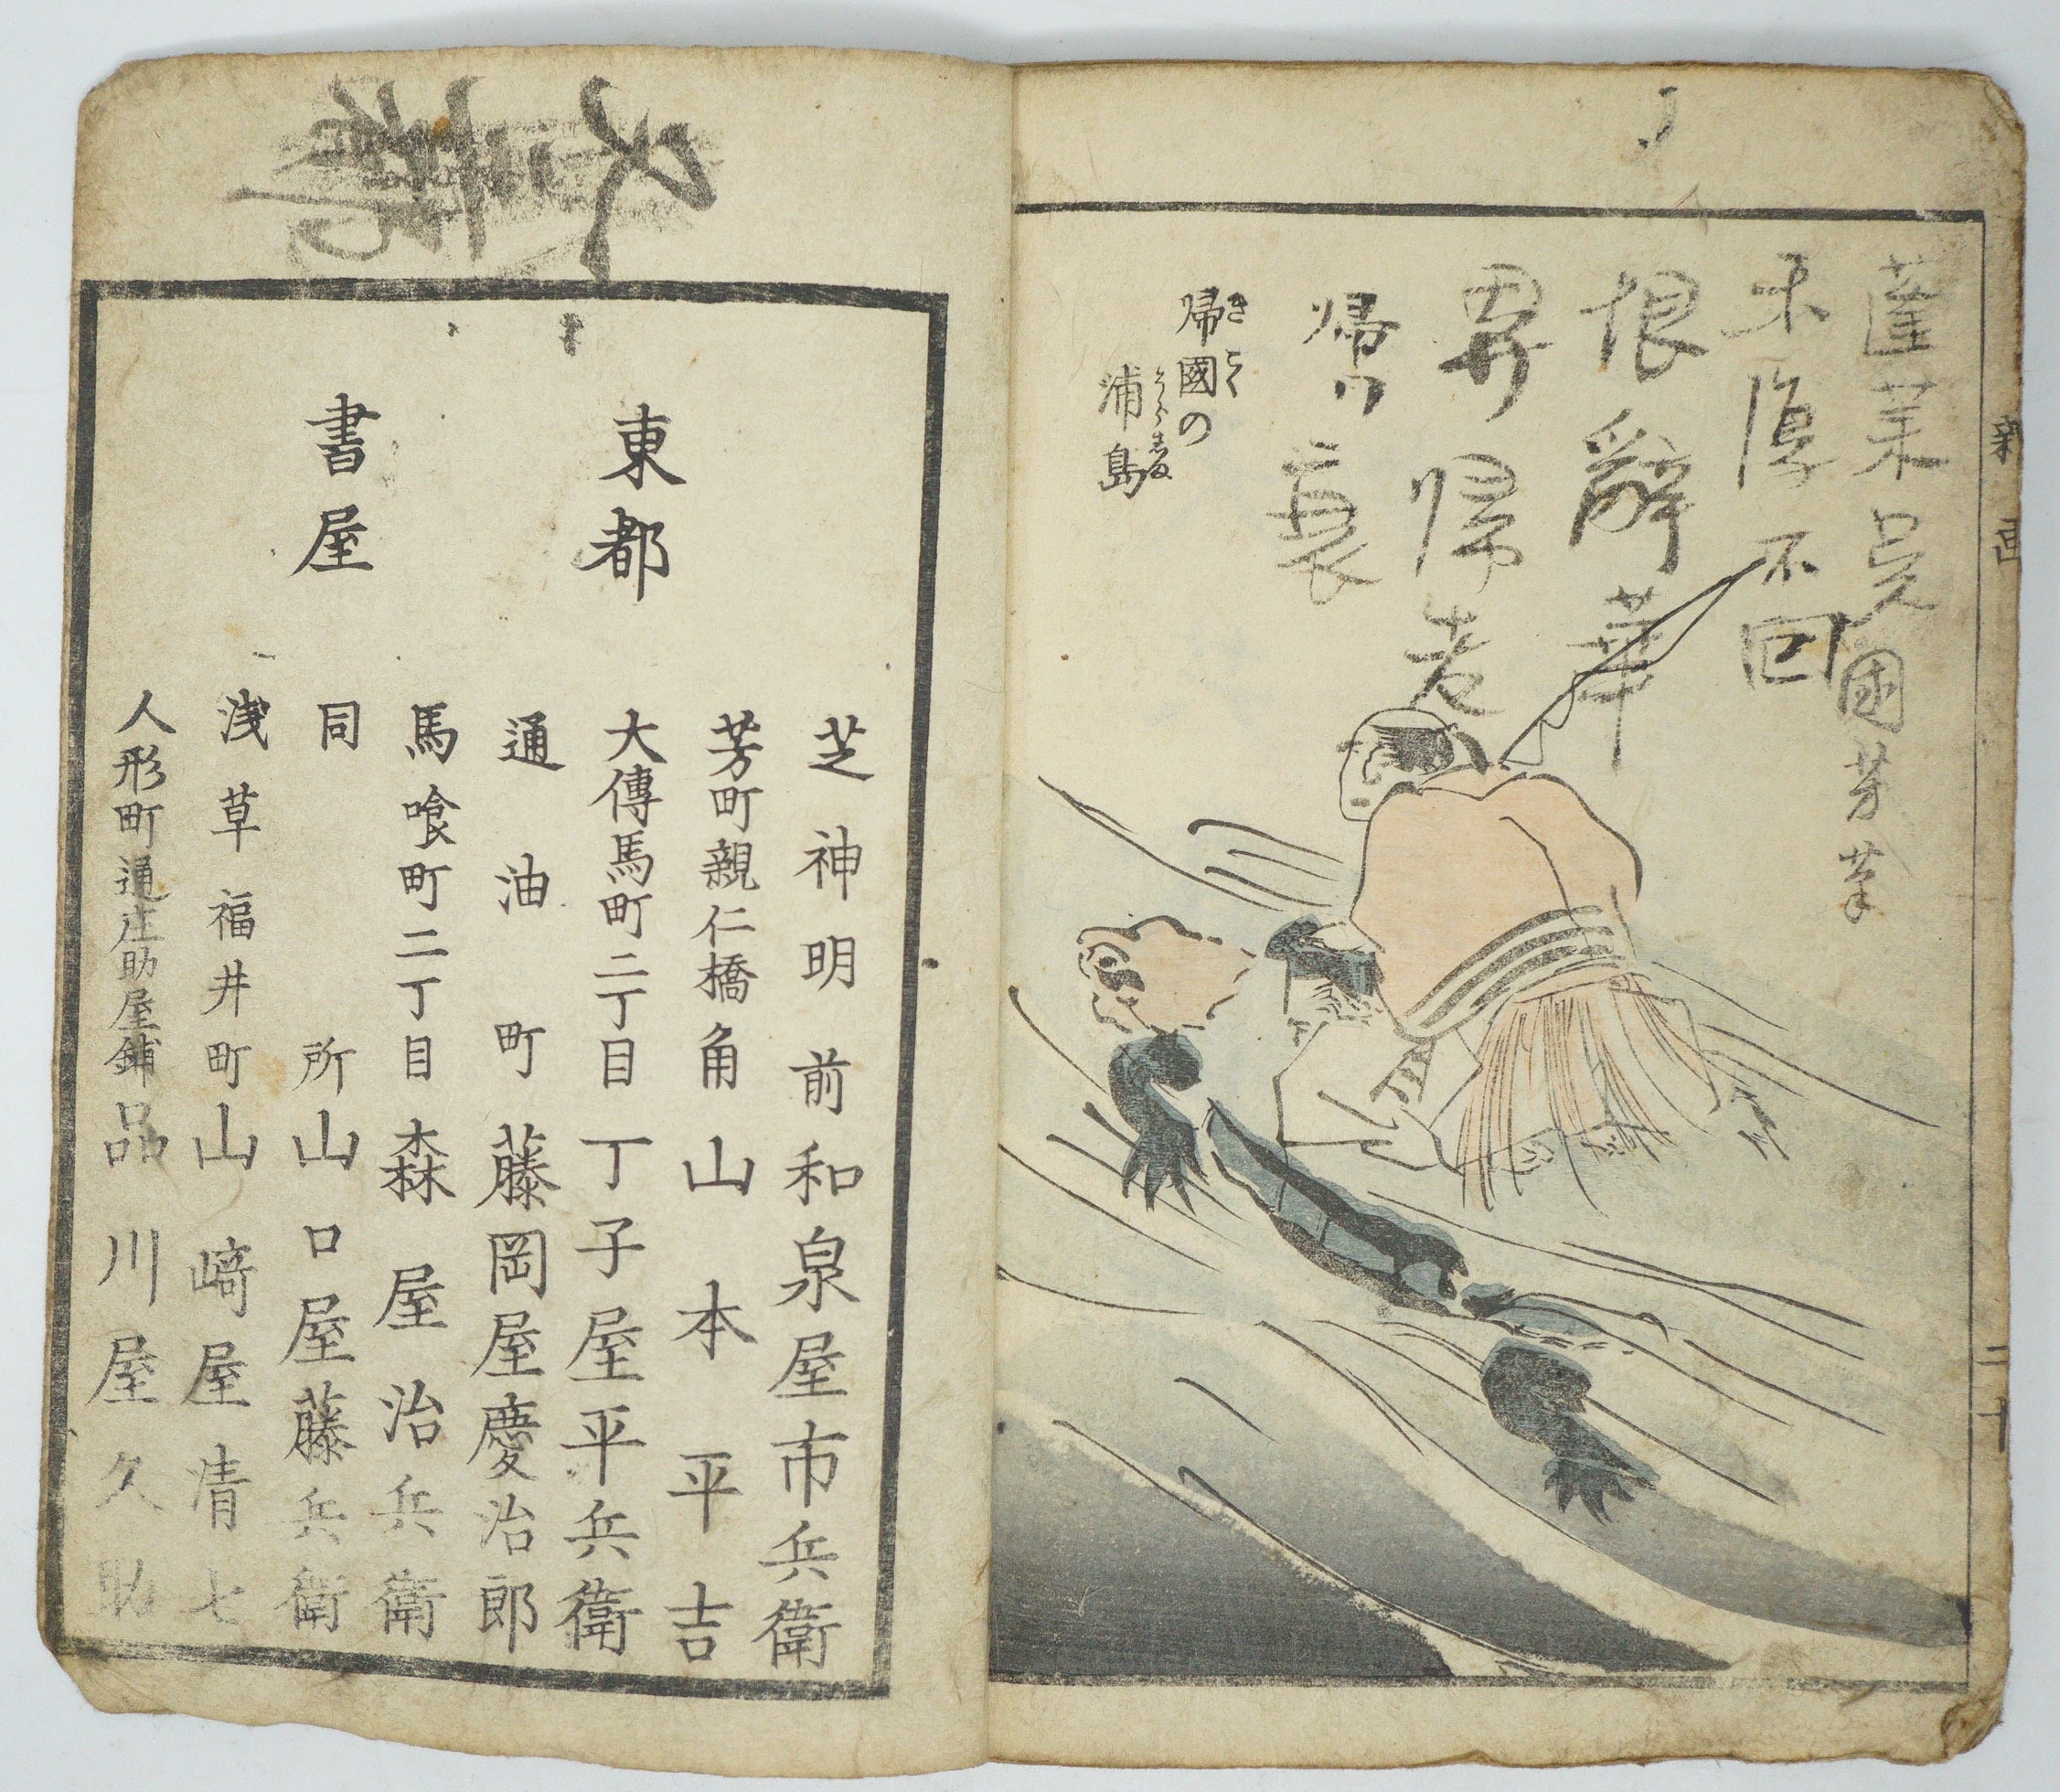 蓬莱
不
不回
恨辭華
帰老
帰
衰
帰國の
きこく
浦島
うらしま
二十
東都
書屋
芝神明前 和泉屋市兵衛
芳町親仁橋角 山本平吉
大傳馬町二丁目 丁子屋平兵衛
通油町 藤岡屋慶治郎
馬喰町二丁目 森屋治兵衛
同所 山口屋藤兵衛
浅草福井町 山﨑屋清七
人形町通庄助屋鋪 品川屋久助